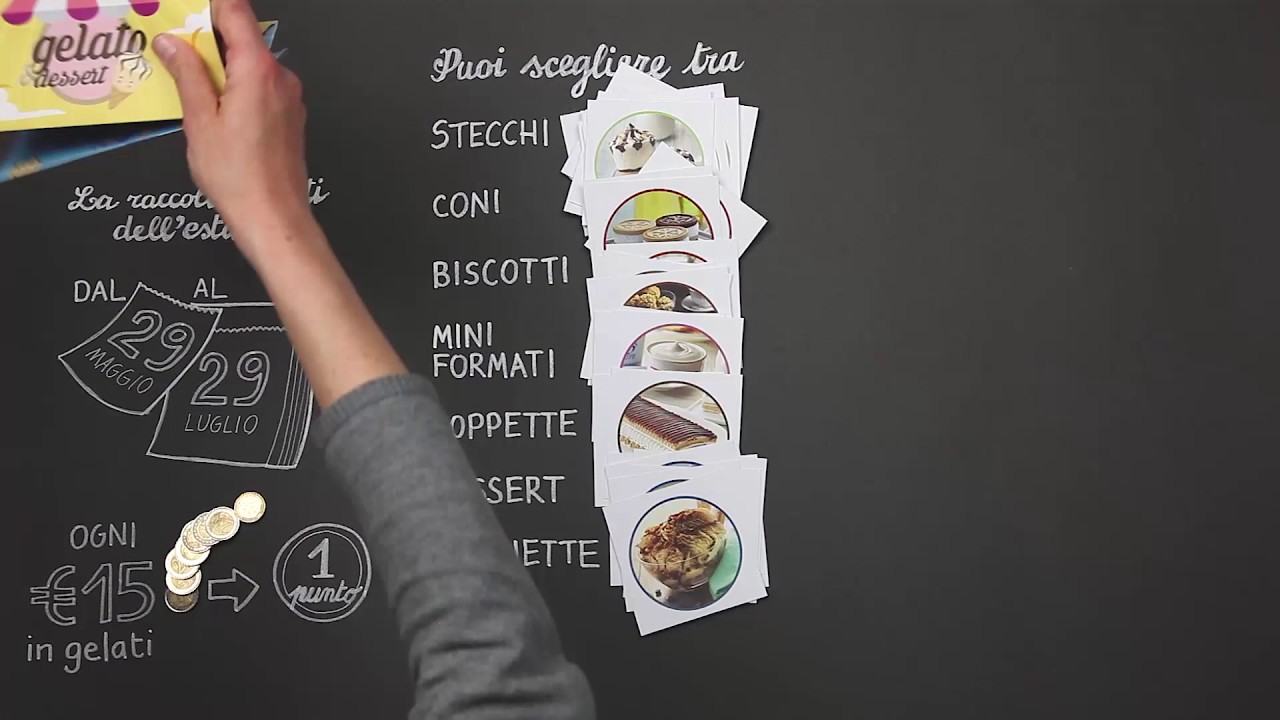 gelato
dessert
Puoi scegliere tra
STECCHI
CONI
BISCOTTI
MINI
FORMATI
OPPETTE
SSERT
IETTE
La raccol ti
dell'est
DAL
29
MAGGIO
AL
29
LUGLIO
OGNI
€15
in gelati
1
punto